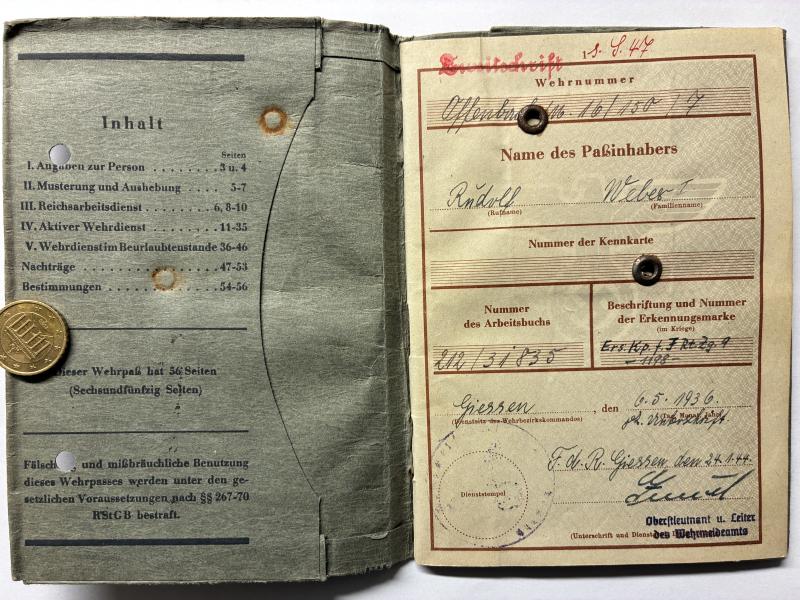 Inhalt
Seiten
I. Angaben zur Person . . . . . . . . 3 u. 4
II. Musterung und Aushebung . . . . 5-7
III. Reichsarbeitsdienst . . . . . . . 6, 8-10
IV. Aktiver Wehrdienst . . . . . . . 11-35
V. Wehrdienst im Beurlaubtenstande 36-46
Nachträge . . . . . . . . . . . . . . . 47-53
Bestimmungen . . . . . . . . . . . . 54-56
Dieser Wehrpaß hat 56 Seiten
(Sechsundfünfzig Seiten)
Fälschung und mißbräuchliche Benutzung
dieses Wehrpasses werden unter den ge-
setzlichen Voraussetzungen nach §§ 267-70
RStGB bestraft.
Zweitschrift
S. 47
Wehrnummer
Offenbach 16/150/7
Name des Paßinhabers
Rudolf Weber I
(Rufname) (Familienname)
Nummer der Kennkarte
Nummer
des Arbeitsbuchs
212/31835
Beschriftung und Nummer
der Erkennungsmarke
(im Kriege)
Ers. Kp. f. 9
-1198-
Giessen, den 6.5.1936.
(Dienstsitz des Wehrbezirkskommandos) (Tag, Monat, Jahr)
gez. Unterschrift
F. d. R. Giessen, den 24.1.44.
Dienststempel
Oberstleutnant u. Leiter
des Wehrmeldeamts
(Unterschrift und